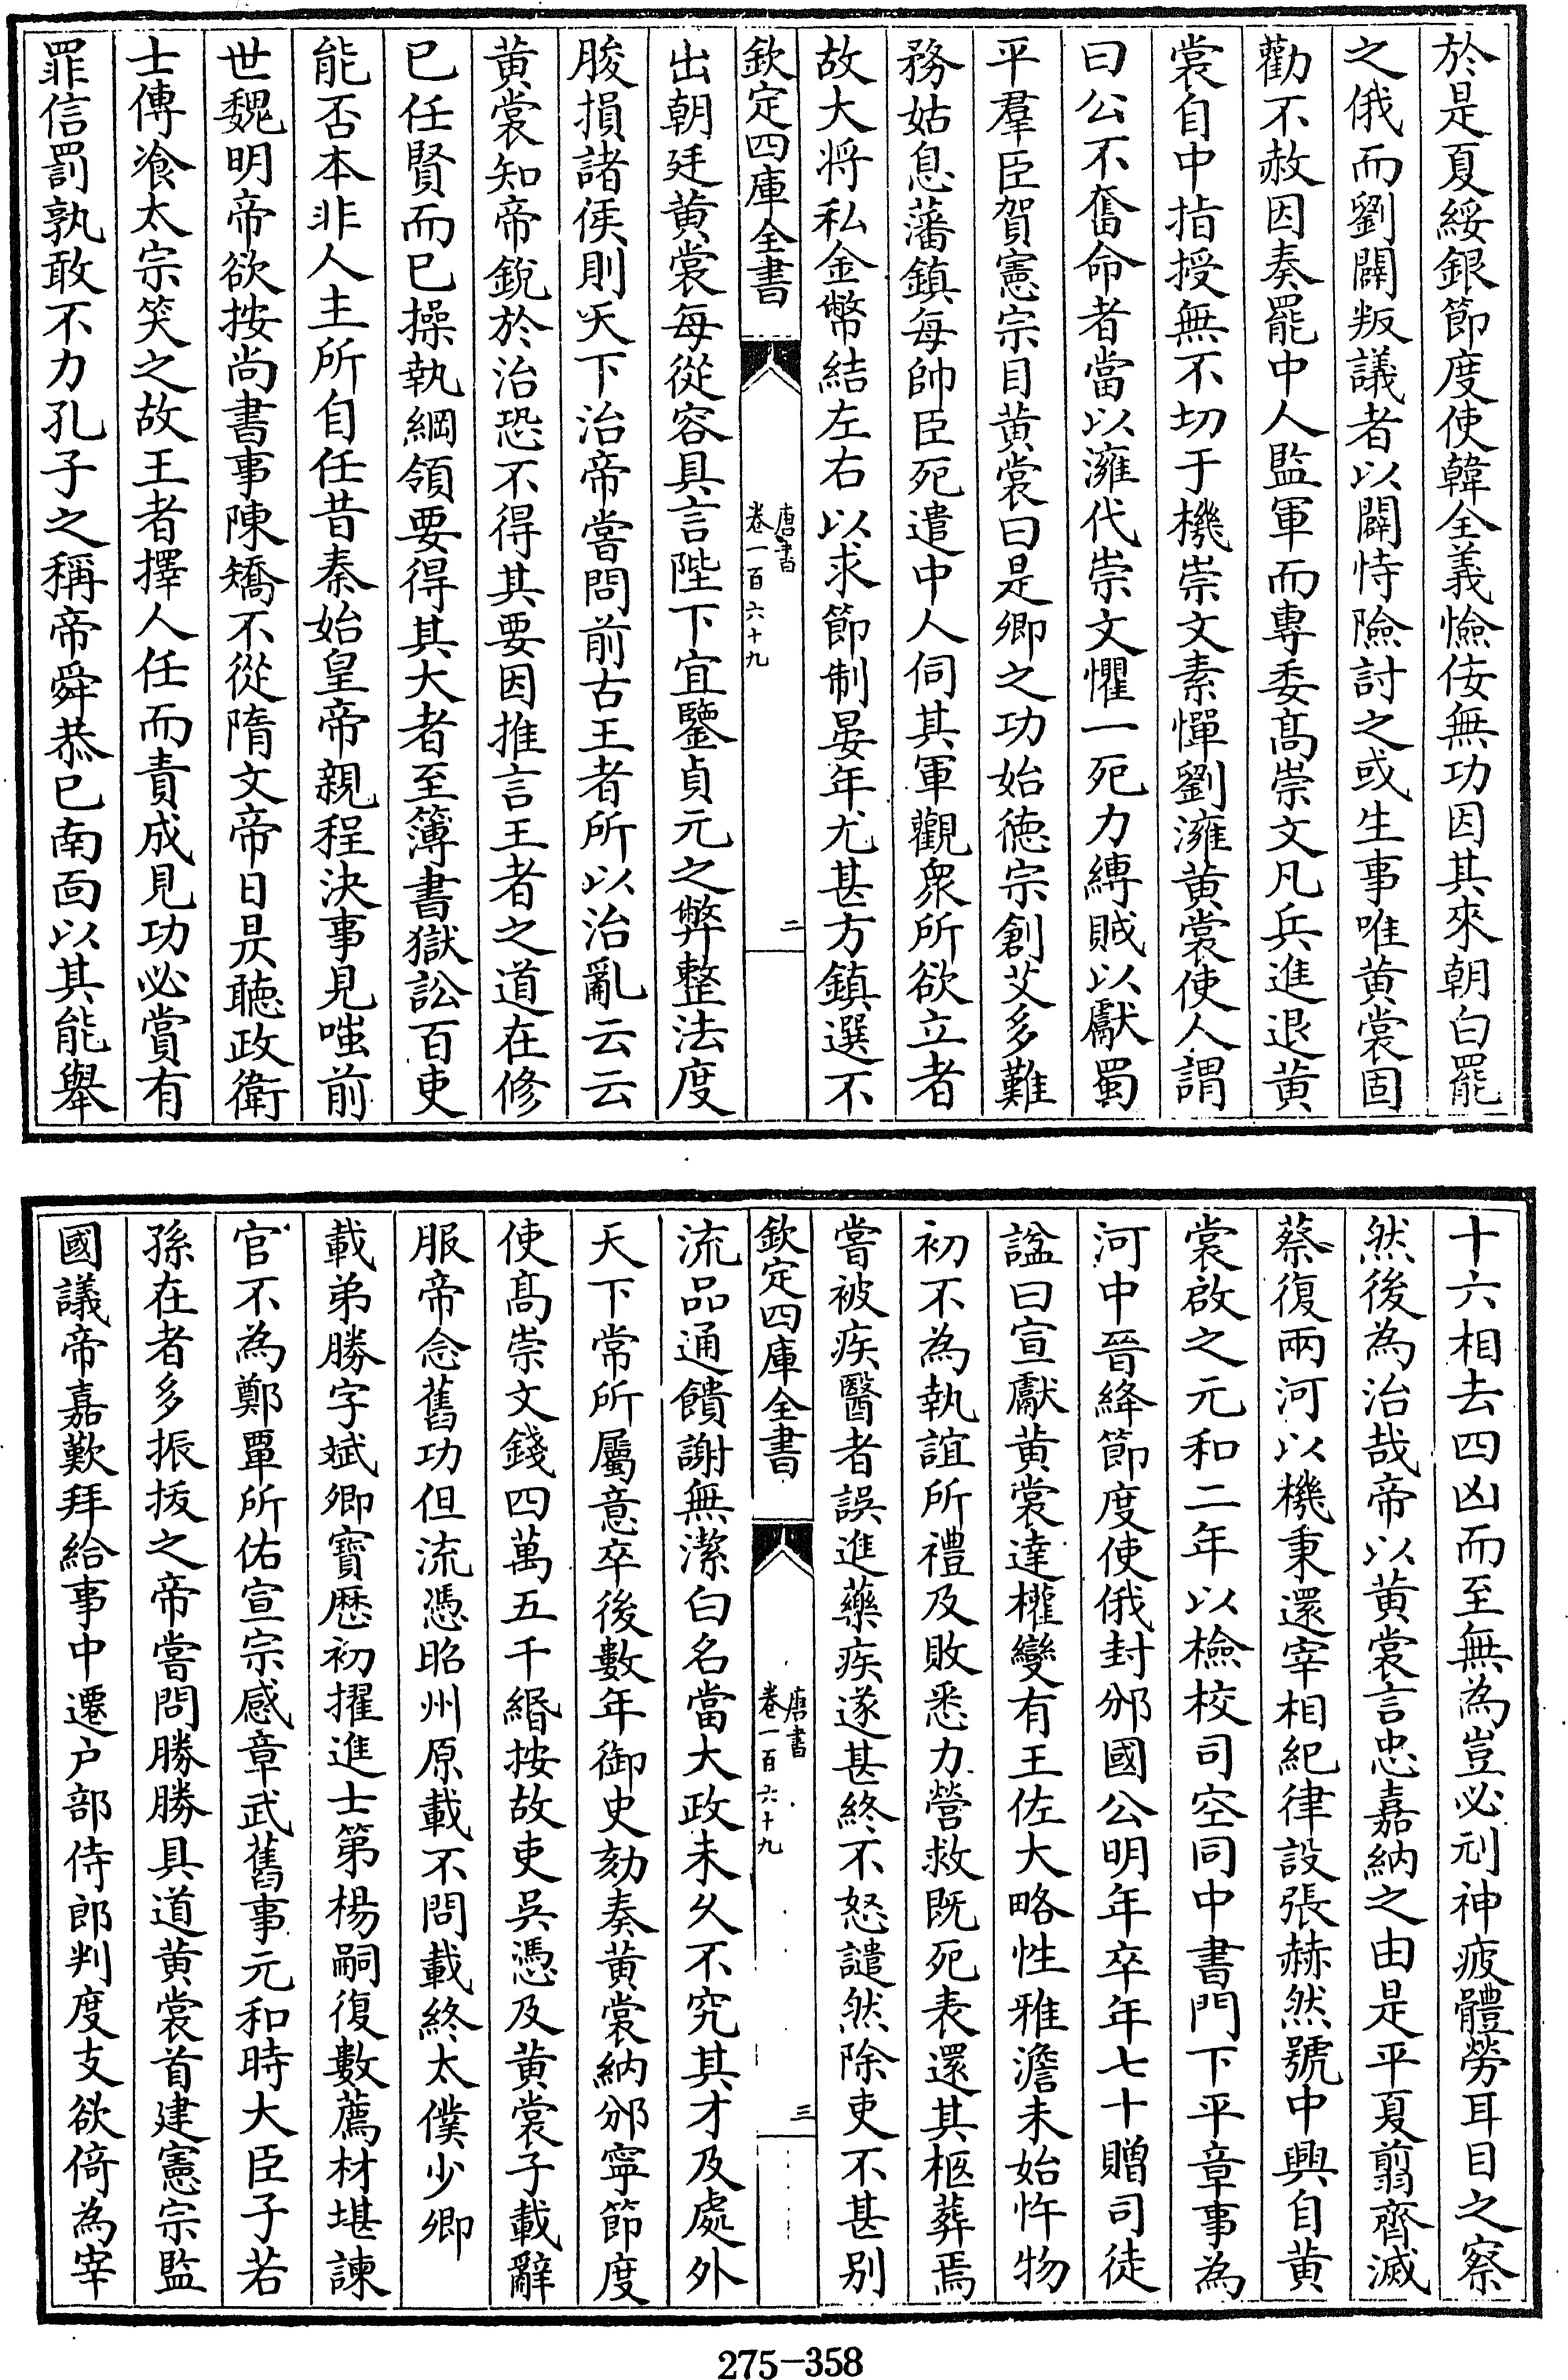 於是夏綏銀節度使韓全義憸佞無功因其來朝白罷
之俄而劉闢叛議者以闢恃險討之或生事唯黄裳固
勸不赦因奏罷中人監軍而專委髙崇文凡兵進退黄
裳自中指授無不切于機崇文素憚劉澭黄裳使人謂
曰公不奮命者當以澭代崇文懼一死力縛賊以獻蜀
平羣臣賀憲宗目黄裳曰是卿之功始德宗創艾多難
務姑息藩鎮每帥臣死遣中人伺其軍觀衆所欲立者
故大將私金幣結左右以求節制晏年尤甚方鎮選不
欽定四庫全書
唐書
卷一百六十九
二
出朝廷黄裳每從容具言陛下宜鑒貞元之弊整法度
朘損諸侯則天下治帝嘗問前古王者所以治亂云云
黄裳知帝銳於治恐不得其要因推言王者之道在修
已任賢而已操執綱領要得其大者至簿書獄訟百吏
能否本非人主所自任昔秦始皇帝親程决事見嗤前
世魏明帝欲按尚書事陳矯不從隋文帝日昃聽政衛
士傳飡太宗笑之故王者擇人任而責成見功必賞有
罪信罰孰敢不力孔子之稱帝舜恭已南面以其能舉
十六相去四凶而至無為豈必刓神疲體勞耳目之察
然後為治哉帝以黄裳言忠嘉納之由是平夏翦齊滅
蔡復兩河以機秉還宰相紀律設張赫然號中興自黄
裳啟之元和二年以檢校司空同中書門下平章事為
河中晉絳節度使俄封邠國公明年卒年七十贈司徒
諡曰宣獻黄裳達權變有王佐大略性雅澹未始忤物
初不為執誼所禮及敗悉力營救既死表還其柩葬焉
嘗被疾醫者誤進藥疾遂甚終不怒譴然除吏不甚别
欽定四庫全書
唐書
卷一百六十九
三
流品通饋謝無潔白名當大政未久不究其才及處外
天下常所屬意卒後數年御史劾奏黄裳納邠寧節度
使髙崇文錢四萬五千緡按故吏吳憑及黄裳子載辭
服帝念舊功但流憑昭州原載不問載終太僕少卿
載弟勝字斌卿寶歴初擢進士第楊嗣復數薦材堪諫
官不為鄭覃所佑宣宗感章武舊事元和時大臣子若
孫在者多振拔之帝嘗問勝勝具道黄裳首建憲宗監
國議帝嘉歎拜給事中遷户部侍郎判度支欲倚為宰
275-358